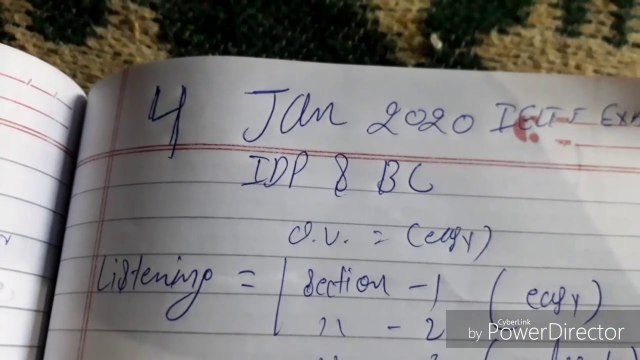 4 Jan 2020 IELTS Ex
IDP & BC
O.V. = (easy)
Listening = section - 1 (easy)
" - 2
CyberLink
by PowerDirector